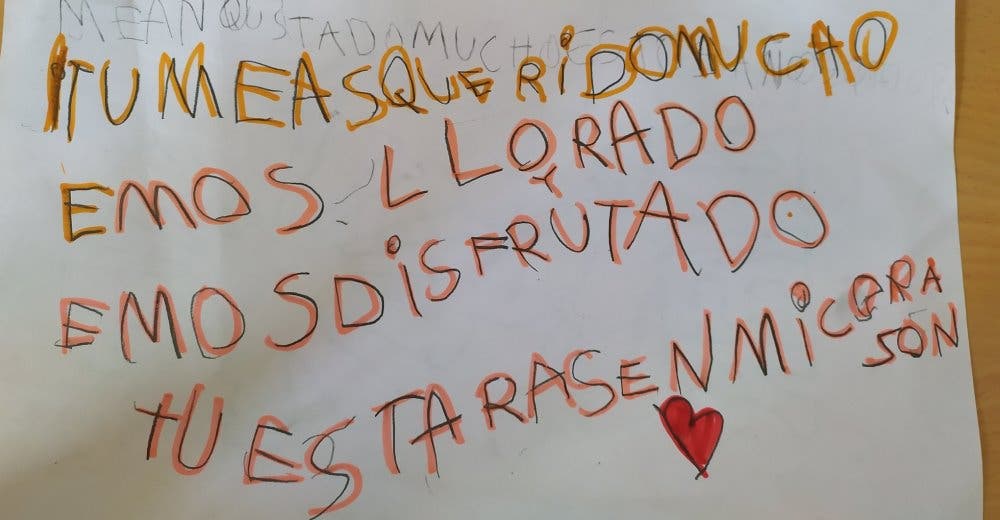 MEANQUSTADAMUCHO
TUMEASQUERiDOMUCHO
EMOS LLORADO
Y
EMOSDiSFRUTADO
TU ESTARASENMiCORA
SON